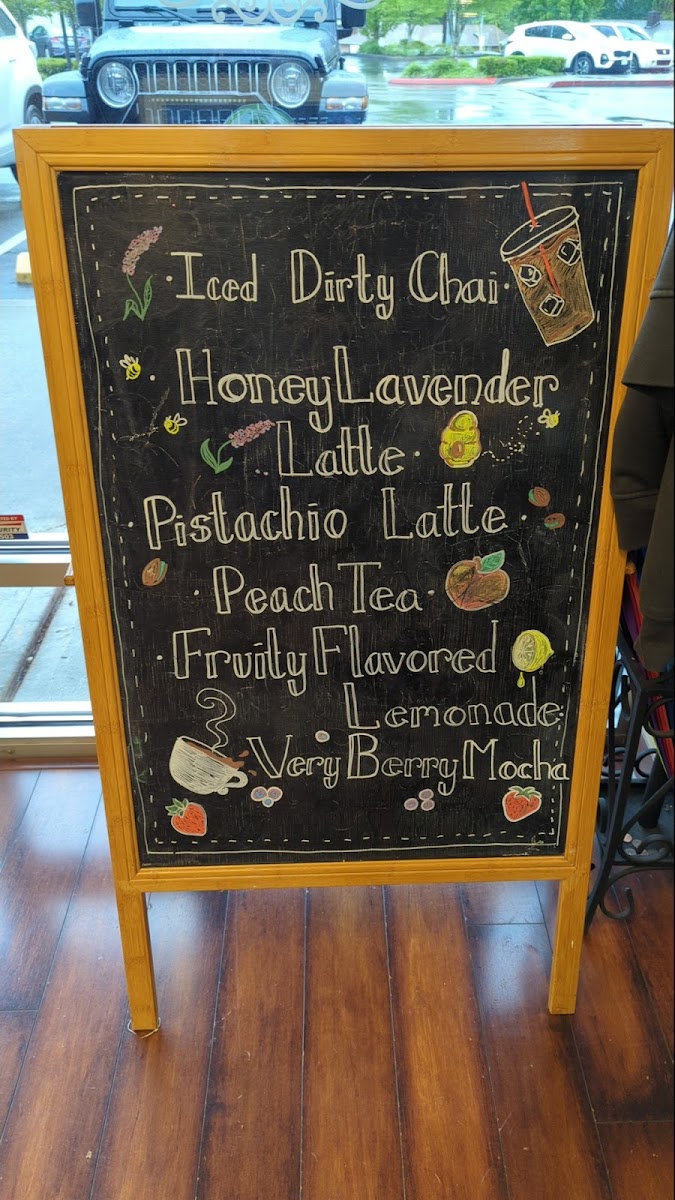 · Iced Dirty Chai ·
· Honey Lavender
Latte ·
· Pistachio Latte ·
· Peach Tea ·
· Fruity Flavored
Lemonade ·
Very Berry Mocha